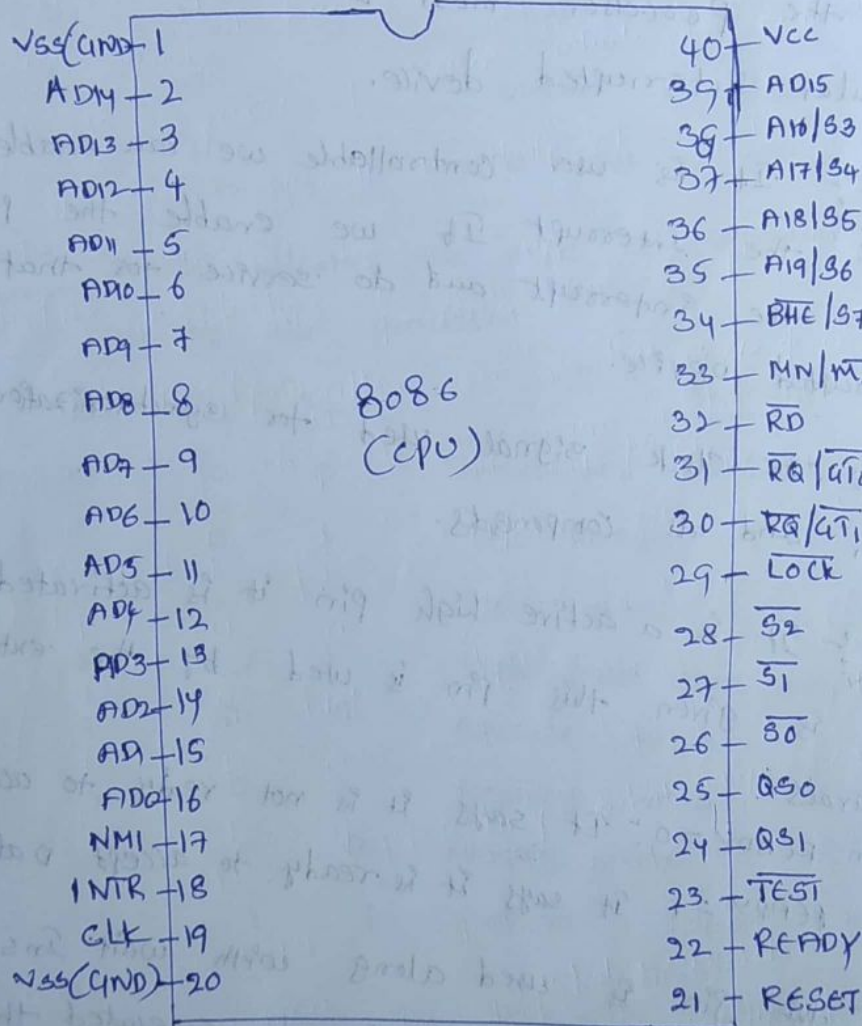 VSS(GND) 1
AD14 2
AD13 3
AD12 4
AD11 5
AD10 6
AD9 7
AD8 8
AD7 9
AD6 10
AD5 11
AD4 12
AD3 13
AD2 14
AD1 15
AD0 16
NMI 17
INTR 18
CLK 19
VSS(GND) 20
8086
(CPU)
40 VCC
39 AD15
38 A16/S3
37 A17/S4
36 A18/S5
35 A19/S6
34 B̅H̅E̅/S7
33 MN/M̅
32 R̅D̅
31 R̅Q̅/G̅T̅
30 R̅Q̅/G̅T̅1
29 L̅O̅C̅K̅
28 S̅2̅
27 S̅1̅
26 S̅0̅
25 QS0
24 QS1
23. T̅E̅S̅T̅
22 READY
21 RESET